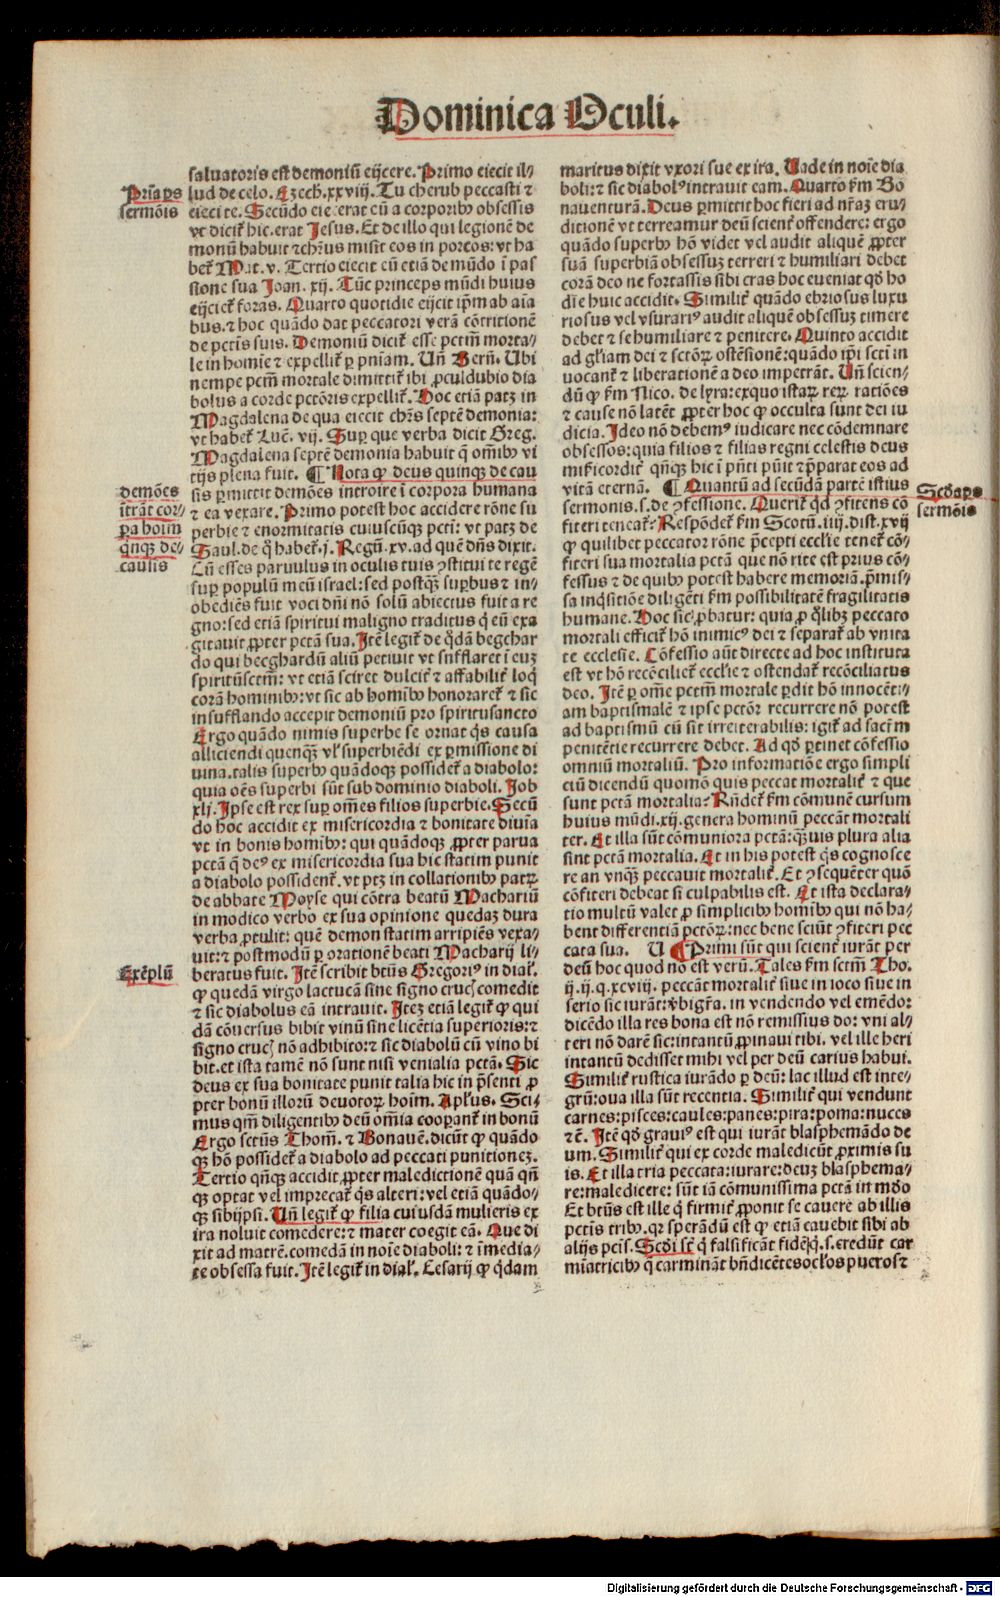 Dominica Oculi.
saluatoris est demoniũ eijcere. Primo eiecit il⸗
lud de celo. Ezech. xxviij. Tu cherub peccasti ⁊
eieci te. Secũdo eiecerat eũ a corporibꝰ obsessis
vt dicit̃ hic. erat Jesus. Et de illo qui legionẽ de
monũ habuit ⁊ chr̃us misit eos in porcos: vt ha
bet̃ Mat. v. Tertio eiecit eũ etiã de mũdo ĩ pas
sione sua Joan. xij. Tũc princeps mũdi huius
eijciet̃ foras. Quarto quotidie eijcit ip̃m ab aĩa
bus. ⁊ hoc quãdo dat peccatori verã cõtritionẽ
de pctĩs suis. Demoniũ dicit̃ esse pctm̃ morta⸗
le in homĩe ⁊ expellit̃ ꝑ pniãm. Uñ Berñ. Ubi
nempe pctm̃ mortale dimittit̃ ibi ꝓculdubio dia
bolus a corde pctõris expellit̃. Hoc etiã patꝫ in
Magdalena de qua eiecit chrs̃ septẽ demonia:
vt habet̃ Luẽ. vij. Suꝑ que verba dicit Greg.
Magdalena septẽ demonia habuit q̃ om̃ibꝰ vi
tijs plena fuit. ¶ Nota ꝙ deus quinqꝫ de cau
sis ꝑmittit demões introire ĩ corpora humana
⁊ ea vexare. Primo potest hoc accidere rõne su
perbie ⁊ enormitatis cuiuscũqꝫ pctĩ: vt patꝫ de
Saul. de q̃ habet̃. j. Regũ. xv. ad quẽ dñs dixit.
Cũ esses paruulus in oculis tuis ꝯstitui te regẽ
suꝑ populũ meũ israel: sed postqꝫ suꝑbus ⁊ in⸗
obediẽs fuit voci dñi nõ solũ abiectus fuit a re
gno: sed etiã spiritui maligno traditus q̃ eũ exa
gitauit ꝓpter pctã sua. Jtẽ legit̃ de q̃dã beghar
do qui beeghardũ aliũ petiuit vt sufflaret ĩ eũ
spiritũsctm̃: vt etiã sciret dulcit̃ ⁊ affabilit̃ loq̃
corã hominibꝰ: vt sic ab homĩbꝰ honoraret̃ ⁊ sic
insufflando accepit demoniũ pro spiritusancto
Ergo quãdo nimis superbe se ornat q̃s causa
alliciendi quenqꝫ vl̃ superbiẽdi ex ꝑmissione di
uina. talis superbꝰ quãdoqꝫ possidet̃ a diabolo:
quia oẽs superbi sũt sub dominio diaboli. Job
xlj. Jpse est rex suꝑ om̃es filios superbie. Secũ
do hoc accidit ex misericordia ⁊ bonitate diuĩa
vt in bonis homĩbꝰ: qui quãdoqꝫ ꝓpter parua
pctã q̃ deꝰ ex misericordia sua hic statim punit
a diabolo possident̃. vt ptꝫ in collationibꝰ patrꝫ
de abbate Moyse qui cõtra beatũ Machariũ
in modico verbo ex sua opinione quedaꝫ dura
verba ꝓtulit: quẽ demon statim arripiẽs vexa⸗
uit: ⁊ postmodũ ꝑ orationẽ beati Macharij li⸗
beratus fuit. Jtẽ scribit btũs Gregoriꝰ in dial̃.
ꝙ quedã virgo lactucã sine signo crucꝭ comedit
⁊ sic diabolus eã intrauit. Jteꝫ etiã legit̃ ꝙ qui
dã cõuersus bibit vinũ sine licẽtia superioris: ⁊
signo crucꝭ nõ adhibito: ⁊ sic diabolũ cũ vino bi
bit. et ista tamẽ nõ sunt nisi venialia pctã. Sic
deus ex sua bonitate punit talia hic in p̃senti ꝓ
pter bonũ illorũ deuotorꝫ hoĩm. Apl̃us. Sci⸗
mus qm̃ diligentibꝰ deũ om̃ia cooꝑant̃ in bonũ
Ergo sctũs Thom̃. ⁊ Bonauẽ. dicũt ꝙ quãdo
qꝫ hõ possidet̃ a diabolo ad peccati punitioneꝫ.
Tertio qñqꝫ accidit ꝓpter maledictionẽ quã qñ
qꝫ optat vel imprecat̃ q̃s alteri: vel etiã quãdo⸗
qꝫ sibijpsi. Uñ legit̃ ꝙ filia cuiusdã mulieris ex
ira noluit comedere: ⁊ mater coegit eã. Que di
xit ad matrẽ. comedã in noĩe diaboli: ⁊ ĩmedia⸗
te obsessa fuit. Jtẽ legit̃ in dial̃. Cesarij ꝙ q̃dam
Prĩa ꝑs
sermõis
demões
ĩtrãt cor⸗
ꝑa hoĩm
q̃nqꝫ de⸗
causis
Exẽplũ
maritus dixit vxori sue ex ira. Uade in noĩe dia
boli: ⁊ sic diabolꝰ intrauit eam. Quarto ẜm Bo
nauenturã. Deus ꝑmittit hoc fieri ad nr̃aꝫ eru⸗
ditionẽ vt terreamur deũ scient̃ offendere: ergo
quãdo superbꝰ hõ videt vel audit aliquẽ ꝓpter
suã superbiã obsessuꝫ terreri ⁊ humiliari debet
corã deo ne fortassis sibi cras hoc eueniat qd̃ ho
die huic accidit. Similit̃ quãdo ebriosus luxu
riosus vel vsurariꝰ audit aliquẽ obsessuꝫ timere
debet ⁊ se humiliare ⁊ penitere. Quinto accidit
ad gl̃iam dei ⁊ sctõrꝫ ostẽsionẽ: quãdo ip̃i sctĩ in
uocant̃ ⁊ liberationẽ a deo impetrãt. Uñ scien⸗
dũ ꝙ ẜm Nico. de lyra: exquo istarꝫ rerꝫ ratiões
⁊ cause nõ latẽt ꝓpter hoc ꝙ occulta sunt dei iu
dicia. Jdeo nõ debemꝰ iudicare nec cõdemnare
obsessos: quia filios ⁊ filias regni celestis deus
misericordit̃ qñqꝫ hic ĩ pñti pũit ⁊ p̃parat eos ad
vitã eternã. ¶ Quantũ ad secũdã partẽ istius
sermonis. s. de ꝯfessione. Querit̃ qd̃ ꝯfitens cõ
fiteri teneat̃: Respõdet̃ ẜm Scotũ. iiij. dist. xvij
ꝙ quilibet peccator rõne p̃cepti eccl̃ie tenet̃ cõ⸗
fiteri sua mortalia pctã que nõ rite est prius cõ⸗
fessus ⁊ de quibꝰ potest habere memoriã. p̃mis⸗
sa inq̃sitiõe diligẽti ẜm possibilitatẽ fragilitatis
humane. Hoc sic ꝓbatur: quia ꝓ q̃libꝫ peccato
mortali efficit̃ hõ inimicꝰ dei ⁊ separat̃ ab vnita
te ecclesie. Cõfessio aũt directe ad hoc instituta
est vt hõ recõciliet̃ eccl̃ie ⁊ ostendat̃ recõciliatus
deo. Jtẽ ꝑ om̃e pctm̃ mortale ꝑdit hõ innocẽti⸗
am baptismalẽ ⁊ ipse pctõr recurrere nõ potest
ad baptismũ cũ sit irreiterabilis: igit̃ ad sacr̃m
penitẽtie recurrere debet. Ad qd̃ ꝑtinet cõfessio
omniũ mortaliũ. Pro informatiõe ergo simpli
ciũ dicendũ quomõ quis peccat mortalit̃ ⁊ que
sunt pctã mortalia: Rñdet̃ ẜm cõmunẽ cursum
huius mũdi. xij. genera hominũ peccãt mortali
ter. Et illa sũt cõmuniora pctã: qꝫuis plura alia
sint pctã mortalia. Et in his potest q̃s cognosce
re an vnqꝫ peccauit mortalit̃. Et ꝯsequẽter quõ
cõfiteri debeat si culpabilis est. Et ista declara⸗
tio multũ valet ꝓ simplicibꝰ homĩbꝰ qui nõ ha⸗
bent differentiã pctõrꝫ: nec bene sciũt ꝯfiteri pec
cata sua. U ¶ Primi sũt qui scient̃ iurãt per
deũ hoc quod nõ est verũ. Tales ẜm sctm̃ Tho.
ij. ij. q. xcviij. peccãt mortalit̃ siue in ioco siue in
serio sic iurãt: v̾bigr̃a. in vendendo vel emẽdo:
dicẽdo illa res bona est nõ remissius do: vni al⸗
teri nõ darẽ sic: intantũ ꝓpinaui tibi. vel ille heri
intantũ dedisset mihi vel per deũ carius habui.
Similit̃ rustica iurãdo ꝑ deũ: lac illud est inte⸗
grũ: oua illa sũt recentia. Similit̃ qui vendunt
carnes: pisces: caules: panes: pira: poma: nuces
⁊c̃. Jtẽ qd̃ grauiꝰ est qui iurãt blasphemãdo de
um. Similit̃ qui ex corde maledicũt ꝓximis su
is. Et illa tria peccata: iurare: deuꝫ blasphema⸗
re: maledicere: sũt iã cõmunissima pctã in mũdo
Et btũs est ille q̃ firmit̃ ꝓponit se cauere ab illis
pctĩs tribꝰ. qꝛ sperãdũ est ꝙ etiã cauebit sibi ab
alijs pctĩs. Scd̃i sũt q̃ falsificãt fidẽ. q. s. credũt car
miatricibꝰ q̃ carminãt bñdicẽtes ocl̃os pueros ⁊
Scd̃a ꝑs
sermõis
Digitalisierung gefördert durch die Deutsche Forschungsgemeinschaft - DFG